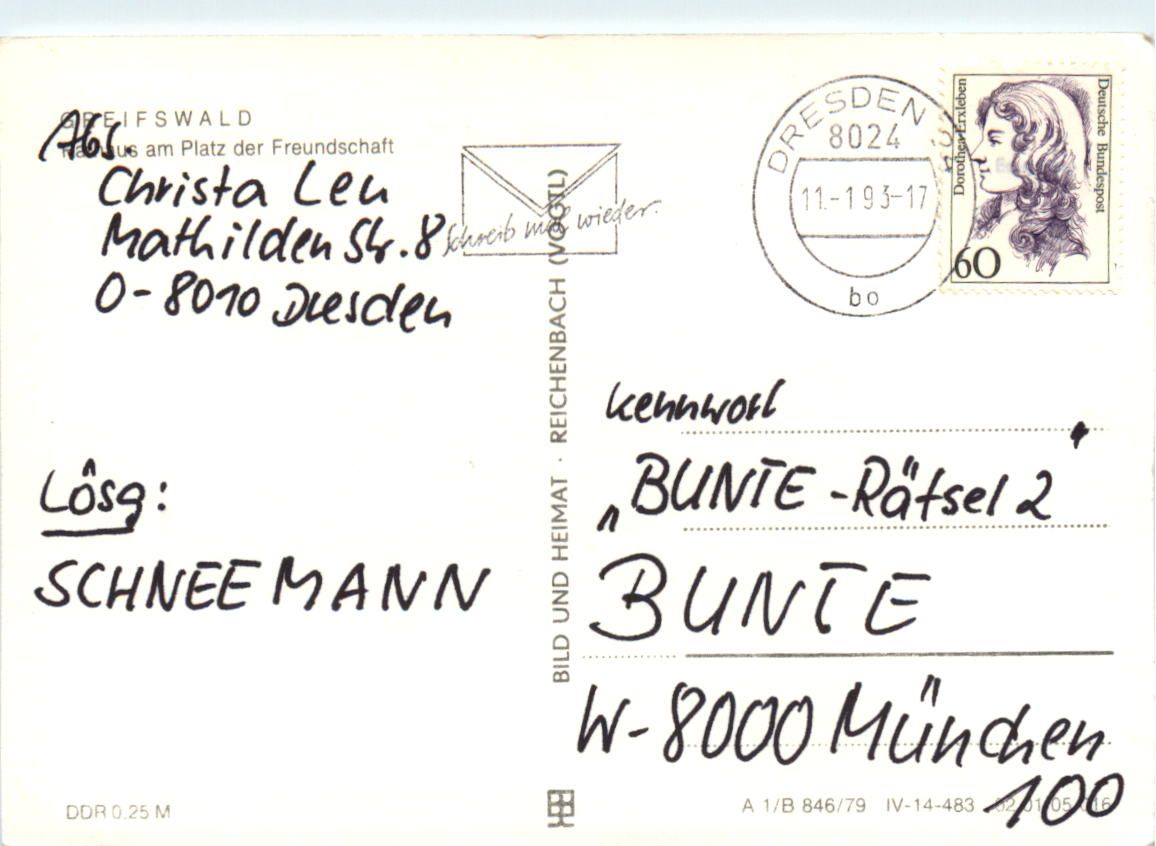 GREIFSWALD
Rathaus am Platz der Freundschaft
Abs.
Christa Leu
Mathilden Str. 8
O-8010 Dresden
Lösg:
SCHNEEMANN
DDR 0.25 M
Schreib mal wieder.
BILD UND HEIMAT · REICHENBACH (VOGTL)
DRESDEN
8024
11.-1 93-17
bo
Dorothea Erxleben
Deutsche Bundespost
60
Kennwort
„BUNTE-Rätsel 2"
BUNTE
W-8000 München
100
A 1/B 846/79 IV-14-483 02 01 05 016